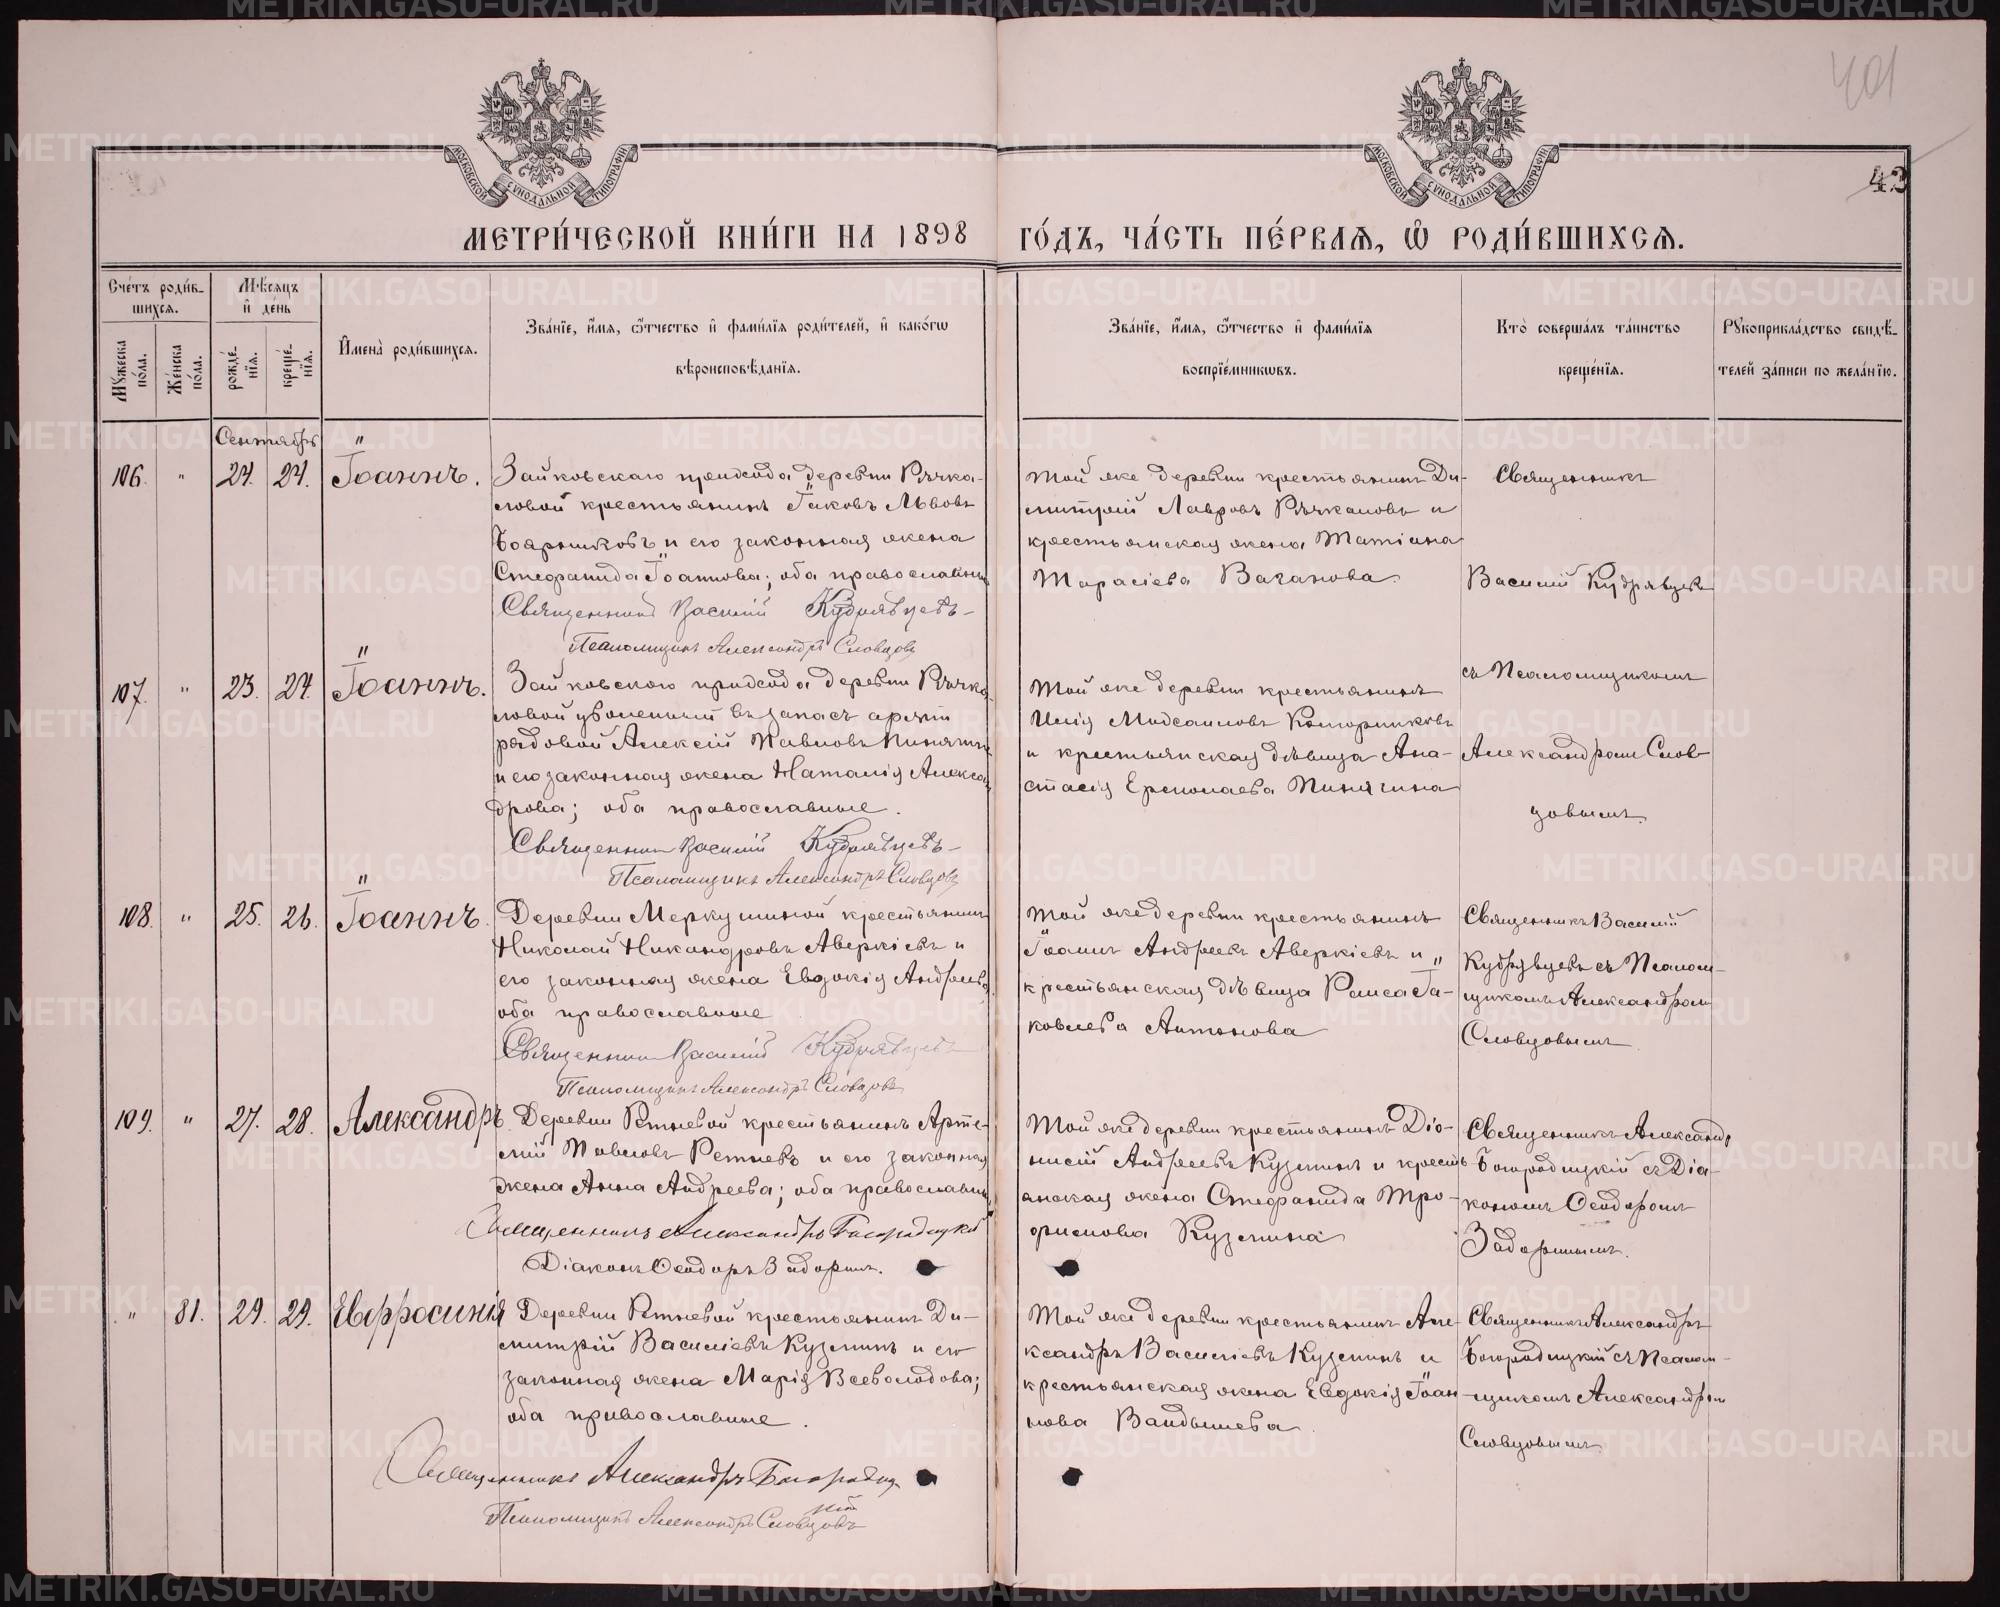 401
43
МОСКОВСКОЙ СѴНОДАЛЬНОЙ ТИПОГРАФІИ
МОСКОВСКОЙ СѴНОДАЛЬНОЙ ТИПОГРАФІИ
МЕТРИ́ЧЕСКОЙ КНИ́ГИ НА 1898
ГО́ДЪ, ЧА́СТЬ ПЕ́РВАѦ, Ѡ РОДИ́ВШИХСѦ.
Сче́тъ роди́в-
шихсѧ.
Мѣ́сѧцъ
и҆ де́нь
Мꙋ́жеска по́ла.
Же́нска по́ла.
рожде́-
нїѧ.
креще́-
нїѧ.
И҆мена̀ роди́вшихсѧ.
Зва́нїе, и҆́мѧ, ѻ҆́тчество и҆ фами́лїѧ роди́телей, и҆ како́гѡ
вѣроисповѣ́данїѧ.
Зва́нїе, и҆́мѧ, ѻ҆́тчество и҆ фами́лїѧ
воспрїе́мникѡвъ.
Кто̀ соверша́лъ та́инство
креще́нїѧ.
Рꙋкоприкла́дство свидѣ́-
телей за́писи по жела́нїю.
Сентябрь
106. " 24. 24. Іоаннъ.
Зайковскаго прихода деревни Рѣчка-
ловой крестьянинъ Іаковъ Львовъ
Боярниковъ и его законная жена
Стефанида Іоаннова; оба православные
Священникъ Василій Кудрявцевъ
Псаломщикъ Александръ Словцовъ
Той же деревни крестьянинъ Ди-
митрій Лавровъ Рѣчкаловъ и
крестьянская жена Татіана
Тарасіева Ваганова.
Священникъ
Василій Кудрявцевъ
съ Псаломщикомъ
Александромъ Слов-
цовымъ.
107. " 23. 24. Іоаннъ.
Зайковскаго прихода деревни Рѣчка-
ловой уволенный въ запасъ арміи
рядовой Алексій Павловъ Пинягинъ
и его законная жена Наталія Алексан-
дрова; оба православные.
Священникъ Василій Кудрявцевъ
Псаломщикъ Александръ Словцовъ
Той же деревни крестьянинъ
Илія
и крестьянская дѣвица Ана-
стасія Ермолаева Пинягина
108. " 25. 26. Іоаннъ.
Деревни Меркушиной крестьянинъ
Николай Никандровъ Аверкіевъ и
его законная жена Евдокія Андреева
оба православные
Священникъ Василій Кудрявцевъ
Псаломщикъ Александръ Словцовъ
Той же деревни крестьянинъ
Іоаннъ Андреевъ Аверкіевъ и
крестьянская дѣвица Раиса Іа-
ковлева Антонова
Священникъ Василій
Кудрявцевъ съ Псалом-
щикомъ Александромъ
Словцовымъ
109. " 27. 28. Александръ.
Деревни Ретневой крестьянинъ Арте-
мій Павловъ Ретневъ и его законная
жена Анна Андреева; оба православные
Священникъ Александръ Богородицкій
Діаконъ Ѳеодоръ Задоринъ.
Той же деревни крестьянинъ Діо-
нисій Андреевъ Кузминъ и кресть-
янская жена Стефанида Тро-
фимова Кузмина
Священникъ Александръ
Богородицкій съ Діа-
кономъ Ѳеодоромъ
Задоринымъ.
" 81. 29. 29. Евфросинія
Деревни Ретневой крестьянинъ Ди-
митрій Василіевъ Кузминъ и его
законная жена Марія Всеволодова;
оба православные.
Священникъ Александръ Богородиц-
кій
Псаломщикъ Александръ Словцовъ
Той же деревни крестьянинъ Але-
ксандръ Василіевъ Кузминъ и
крестьянская жена Евдокія Іоан-
нова Вандышева
Священникъ Александръ
Богородицкій съ Псалом-
щикомъ Александромъ
Словцовымъ
METRIKI.GASO-URAL.RU